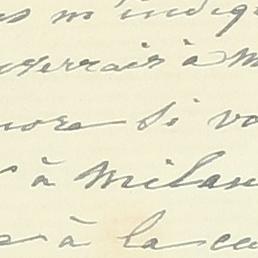 m'indiqu
verrais à m
nore si vo
à Milan
à la ca